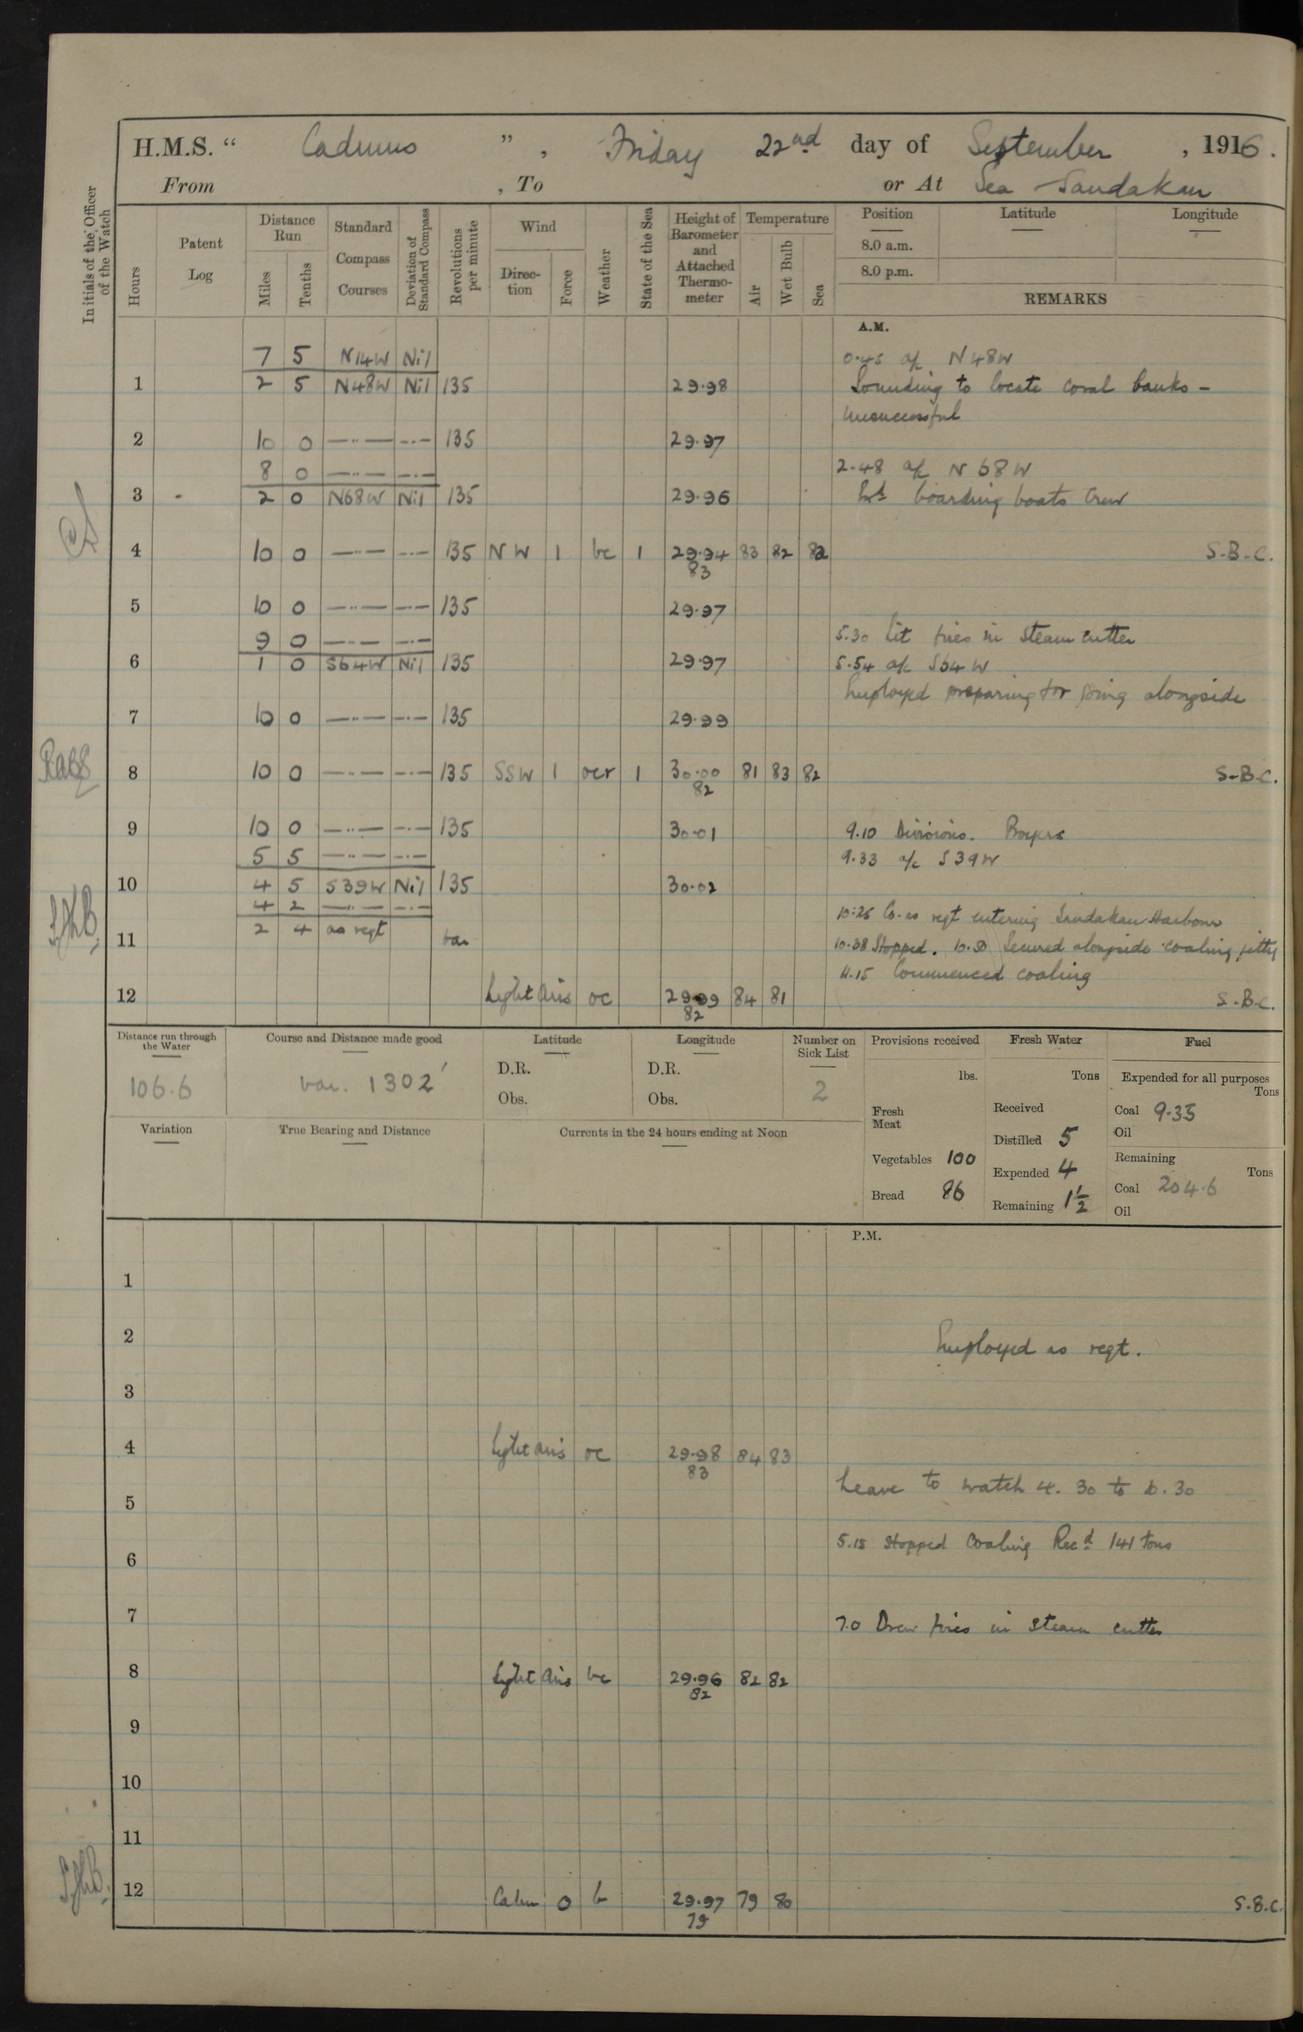 H.M.S. “ Cadmus ” , Friday 22nd day of September , 1916.
From , To or At Sea - Sandakan
Initials of the Officer of the Watch
Hours
Patent Log
Distance Run
Miles
Tenths
Standard Compass Courses
Deviation of Standard Compass
Revolutions per minute
Wind
Direction
Force
Weather
State of the Sea
Height of Barometer and Attached Thermometer
Temperature
Air
Wet Bulb
Sea
Position Latitude Longitude
8.0 a.m.
8.0 p.m.
REMARKS
A.M.
7 5 N14W Nil 0.45 a/c N48W
1 2 5 N48W Nil 135 29.98 Sounding to locate coral banks -
unsuccessful
2 10 0 —··— —·— 135 29.97
8 0 —··— —·— 2.48 a/c N68W
3 2 0 N68W Nil 135 29.96 boarding boats crew
4 10 0 —··— —·— 135 NW 1 bc 1 29.94 83 82 82 S.B.C.
83
5 10 0 —··— —·— 135 29.97
9 0 —··— —·— 5.30 Lit fires in steam cutter
6 1 0 S64W Nil 135 29.97 5.54 a/c S64W
Employed preparing for going alongside
7 10 0 —··— —·— 135 29.99
8 10 0 —··— —·— 135 SSW 1 ocr 1 30.00 81 83 82 S.B.C.
82
9 10 0 —··— —·— 135 30.01 9.10 Divisions. Prayers
5 5 —··— —·— 9.33 a/c S39W
10 4 5 S39W Nil 135 30.02
4 2 —··— —·— 10.25 Co. as reqt entering Sandakan Harbour
11 2 4 as reqt var 10.38 Stopped. 10.50 Secured alongside coaling jetty
11.15 Commenced coaling
12 Light airs oc 29.99 84 81 S.B.C.
82
Distance run through the Water
106.6
Course and Distance made good
var. 1302'
Latitude
D.R.
Obs.
Longitude
D.R.
Obs.
Number on Sick List
2
Provisions received
lbs.
Fresh Meat
Vegetables 100
Bread 86
Fresh Water
Tons
Received
Distilled 5
Expended 4
Remaining 1½
Fuel
Expended for all purposes
Tons
Coal 9.35
Oil
Remaining
Tons
Coal 204.6
Oil
Variation
True Bearing and Distance
Currents in the 24 hours ending at Noon
P.M.
1
2 Employed as reqt.
3
4 Light airs oc 29.98 84 83
83
Leave to watch 4.30 to 6.30
5
5.15 Stopped Coaling Recd 141 tons
6
7 7.0 Drew fires in steam cutter
8 Light airs bc 29.96 82 82
82
9
10
11
12 Calm 0 b 29.97 79 80 S.B.C.
79